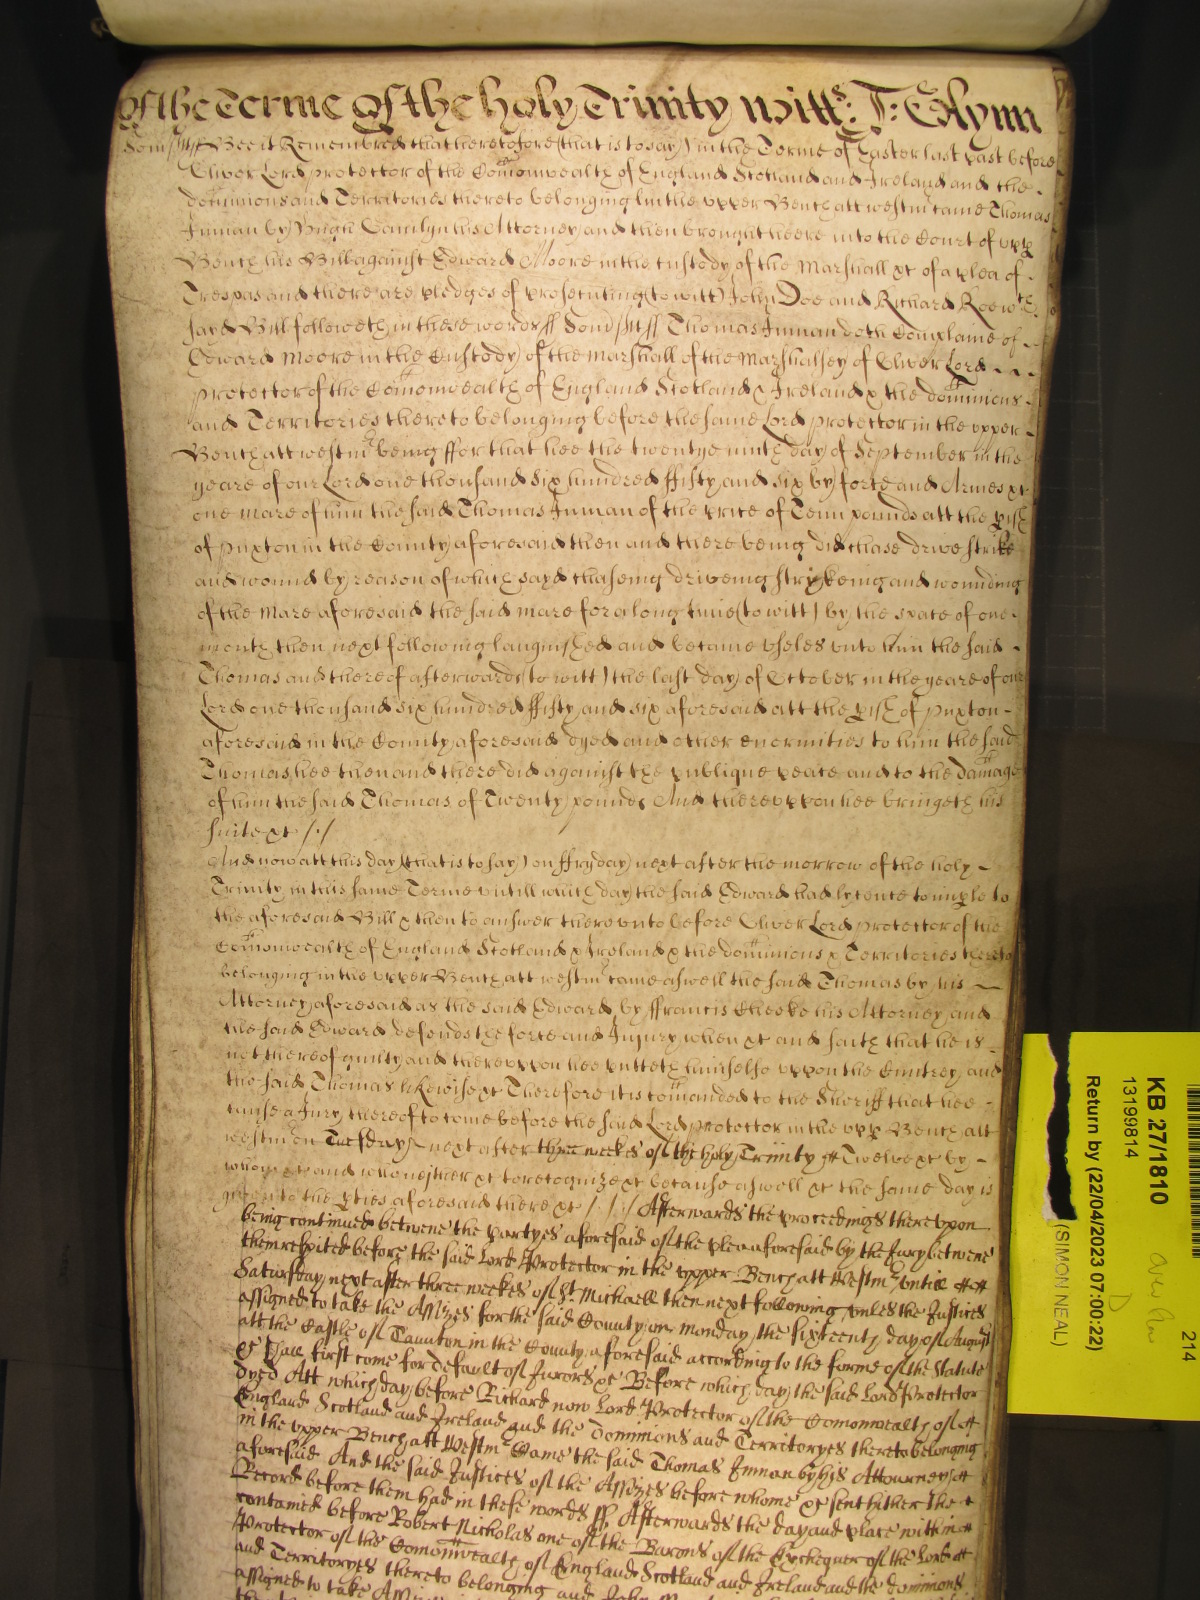 Of the Terme Of the holy Trinity Witts: J: Glynn
Som~/ss/ ff Bee it Remembred that heretofore (that is to say) in the Terme of Easter last past before
Oliver Lord protector of the Comonwealth of England Scotland and Ireland and the
dominions and Territories thereto belonging in the upper Bench att westm~ came Thomas
Inman by Hugh his Attorney and then brought heere into the Court of upp
Bench his Bill against Edward Moore in the custody of the Marshall xc of a plea of
Trespas and there are pledges of prosecuting (to witt) John Doe and Richard Roe wch
sayd Bill followeth in these words ff Som~/ss/ ff Thomas Inman doth Complaine of
Edward Moore in the Custody of the Marshall of the Marshalsey of Oliver Lord
protector of the Comonwealth of England Scotland & Ireland & the dominions
and Territories thereto belonging before the same Lord protector in the upper
Bench att westm~ being ffor that hee the twentye ninth day of September in the
yeare of our Lord one thousand six hundred ffifty and six by force and Armes xc
one mare of him the said Thomas Inman of the price of Tenn pounds att the pish
of puxton in the County aforesaid then and there being did chase drive strike
and wound by reason of which sayd chaseing driveing strykeing and wounding
of the mare aforesaid the said mare for a long time (to witt) by the space of one
month then next following languished and became useles unto him the said
Thomas and thereof afterwards (to witt) the last day of October in the yeare of our
Lord one thousand six hundred ffifty and six aforesaid att the pish of puxton
aforesaid in the County aforesaid dyed and other enormities to him the said
Thomas hee then and there did against the publique peace and to the damage
of him the said Thomas of Twenty pounds And thereuppon hee bringeth his
suite xc /./
And now att this day (that is to say) on ffryday next after the morrow of the holy
Trinity in this same Terme untill which day the said Edward had lycence to imple to
the aforesaid Bill & then to answer thereunto before Oliver Lord protector of the
Comonwealth of England Scotland & Ireland & the dominions & Territories thereto
belonging in the upper Bench att westm~ came aswell the said Thomas by his
Attorney aforesaid as the said Edward by ffrancis Cheeke his Attorney and
the said Edward defends the force and Injury when xc and saith that he is
not thereof guilty and thereuppon hee putteth himselfe uppon the Cuntrey and
the said Thomas likewise xc Therefore it is comanded to the Sheriff that hee
cause a Jury thereof to come before the said Lord protector in the upp Bench att
westm~ on Tuesday next after three weekes of the holy Trinity xc Twelve xc by
whom xc and who neither xc to recognize xc because aswell xc the same day is
given to the pties aforesaid there xc /./ ./ Afterwards the proceedings thereupon
being continued betwene the partyes aforesaid of the plea aforesaid by the Jury betwene
them respited before the said Lord Protector in the upper Bench att Westm~ untill
Saturday next after three weekes of St. Michaell then next following unles the Justices
assigned to take the Assizes for the said County on monday the sixteenth day of August
att the Castle of Taunton in the County aforesaid according to the forme of the Statute
xc shall first come for default of Jurors xc Before which day the said Lord Protector
dyed Att which day before Richard now Lord Protector of the Comonwealth of
England Scotland and Ireland and the Dominions and Territoryes thereto belonging
in the upper Bench att Westm~ Came the said Thomas Inman by his Attourney
aforesaid And the said Justices of the Assizes before whome xc sent hither the
Record before them had in these words ff Afterwards the day and place within
contained before Robert Nicholas one of the Barons of the Exchequer of the Lord
Protector of the Comonwealth of England Scotland and Ireland and the dominions
and Territoryes thereto belonging and John
assigned to take Assizes
KB 27/1810
13199814
Return by (22/04/2023 07:00:22)
(SIMON NEAL)
D
214